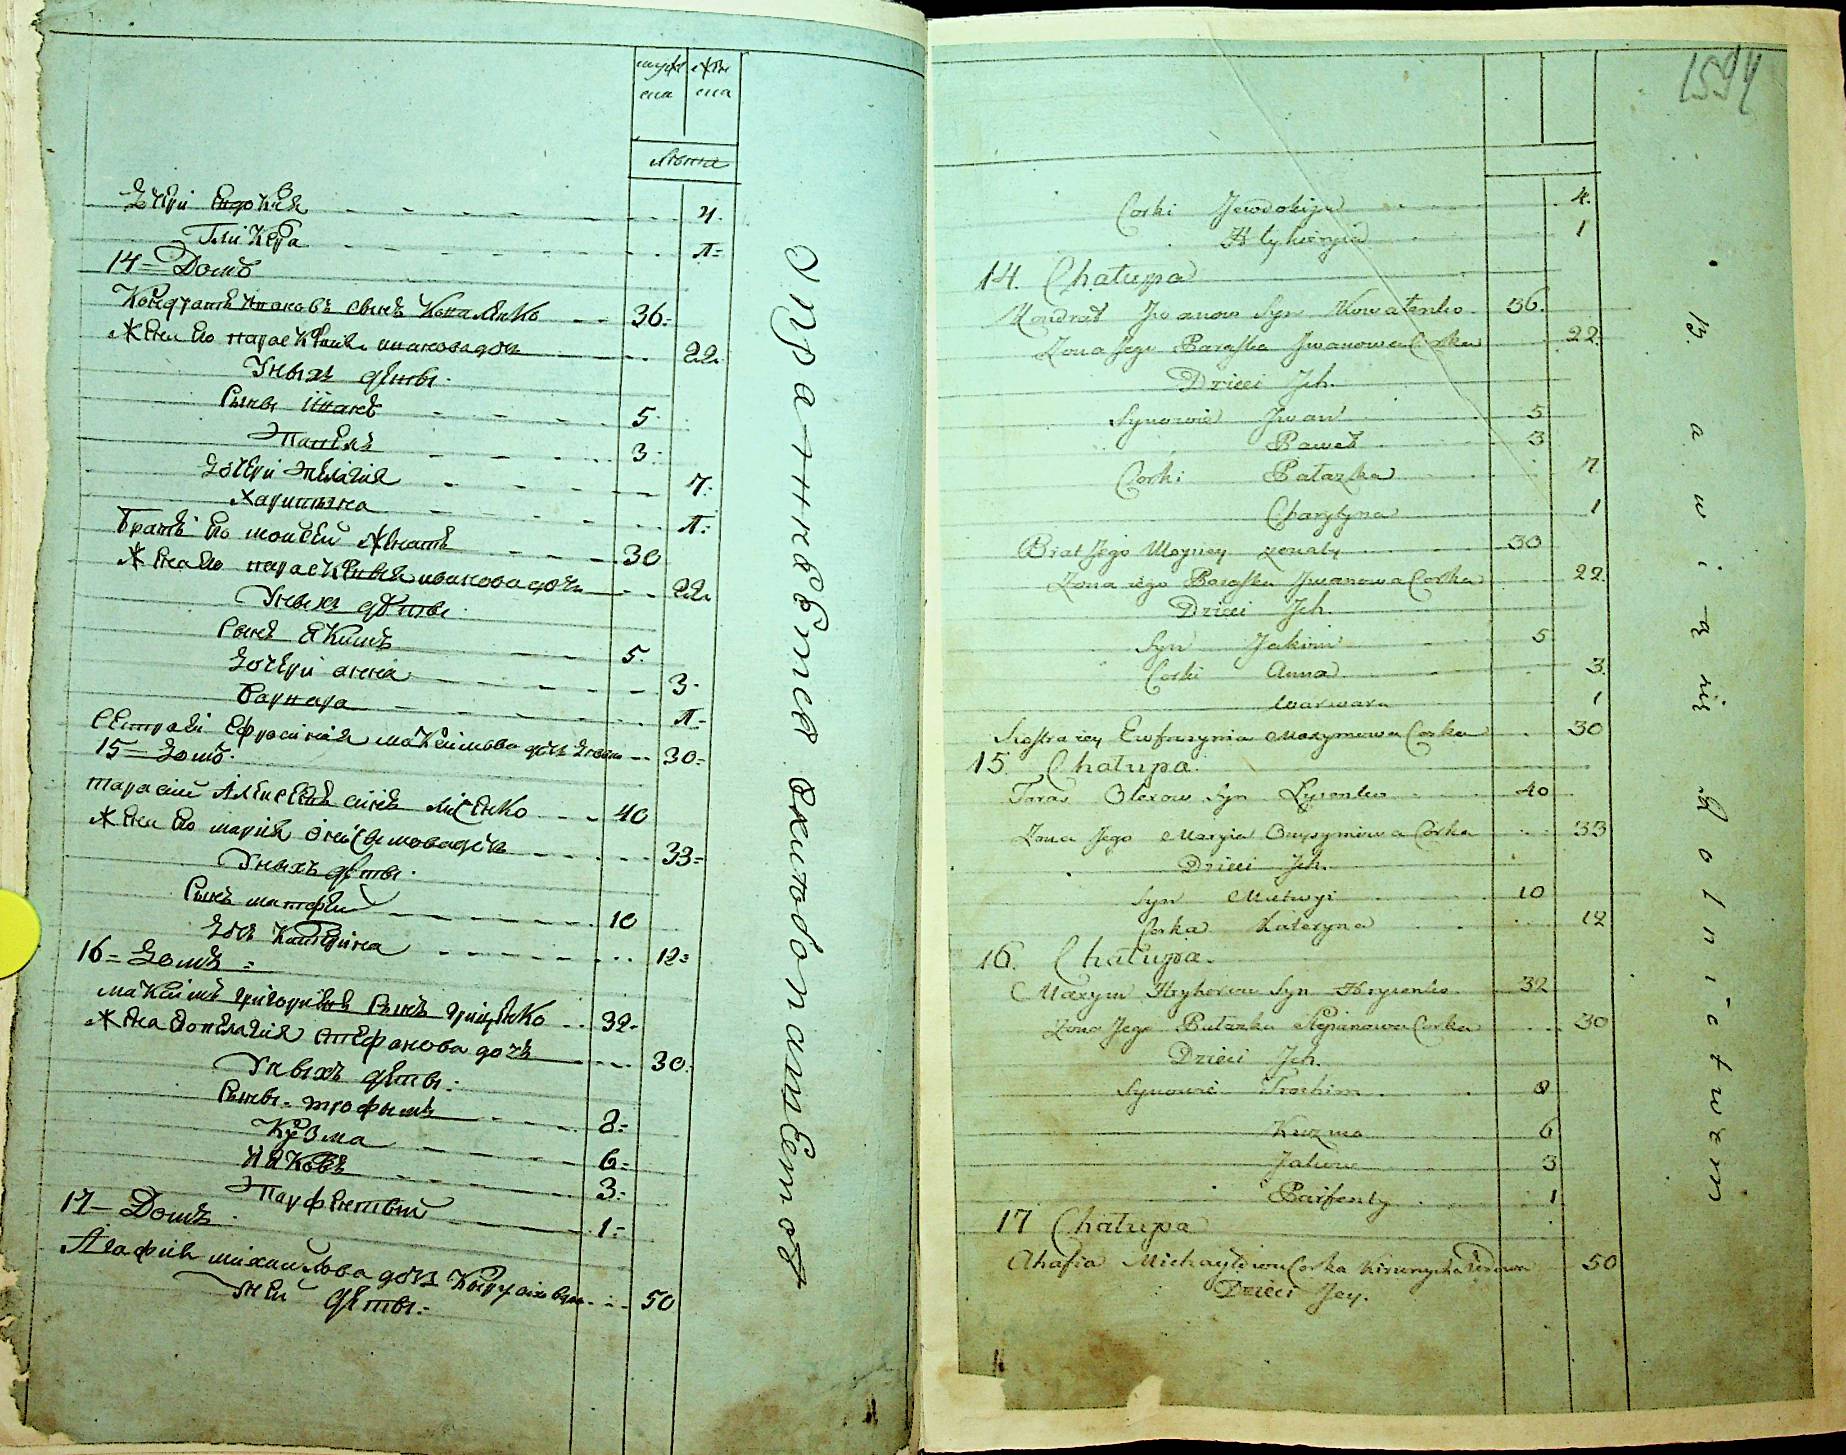 мужеска женска
лѣта
Дочери Евдокія 4.
Гликера 1=
14= Домъ
Кондратъ Ивановъ сынъ Коваленко 36=
Жена его Параскевия Иванова дочь 22.
У них дѣти
Сыны Иванъ 5
Павелъ 3
Дочери Пелагия 7
Харитына 1
Братъ его Моисей женатъ 30
Жена его Параскевия Иванова дочь 22.
У них дѣти
Сынъ Якимъ 5.
Дочери Анна 3
Варвара 1
Сестра Ефросиния Максимова дочь 30=
15= Домъ
Тарасий Алексеевъ сынъ Лисенко 40
Жена его Мария Онисимова дочь 33=
У нихъ дѣти
Сынъ Матфей 10
Дочь Катерина 12=
16= Домъ=
Максимъ Григориевъ сынъ Гриценко 32.
Жена его Пелагия Стефанова дочь 30.
У нихъ дѣти
Сыны Трофимъ 8=
Кузма 6=
Яковъ 3=
Парфентий 1=
17= Домъ
Агафия Михайлова дочь 50
У ней дѣти
1594
Corki Jewdokija 4.
Hlykierija 1
14. Chałupa
Kondrat Jwanow Syn Kowalenko 36.
Zona Jego Paraska Jwanowa Corka 22.
Dzieci Jch.
Synowie Jwan 5
Paweł 3
Corki Pałazka 7
Charytyna 1
Brat Jego Moysiey zonaty 30
Zona iego Paraska Jwanowa Corka 22.
Dzieci Jch.
Syn Jakim 5
Corki Anna 3.
Warwara 1
Siostra iey Ewfrozynia Maxymowa Corka 30
15. Chałupa
Taras Olexow Syn Lysenko 40
Zona Jego Maryia Onysymowa Corka 33
Dzieci Jch.
Syn Matwyi 10
Corka Kateryna 12
16. Chałupa.
Maxym Hryhorow Syn Hrycenko 32
Zona Jego Pałazka Stepanowa Corka 30
Dzieci Jch.
Synowie Trochim 8
Kuzma 6
Jakow 3
Parfenty 1
17 Chałupa
Ahafia Michayłowa Corka 50
Dzieci Jey.